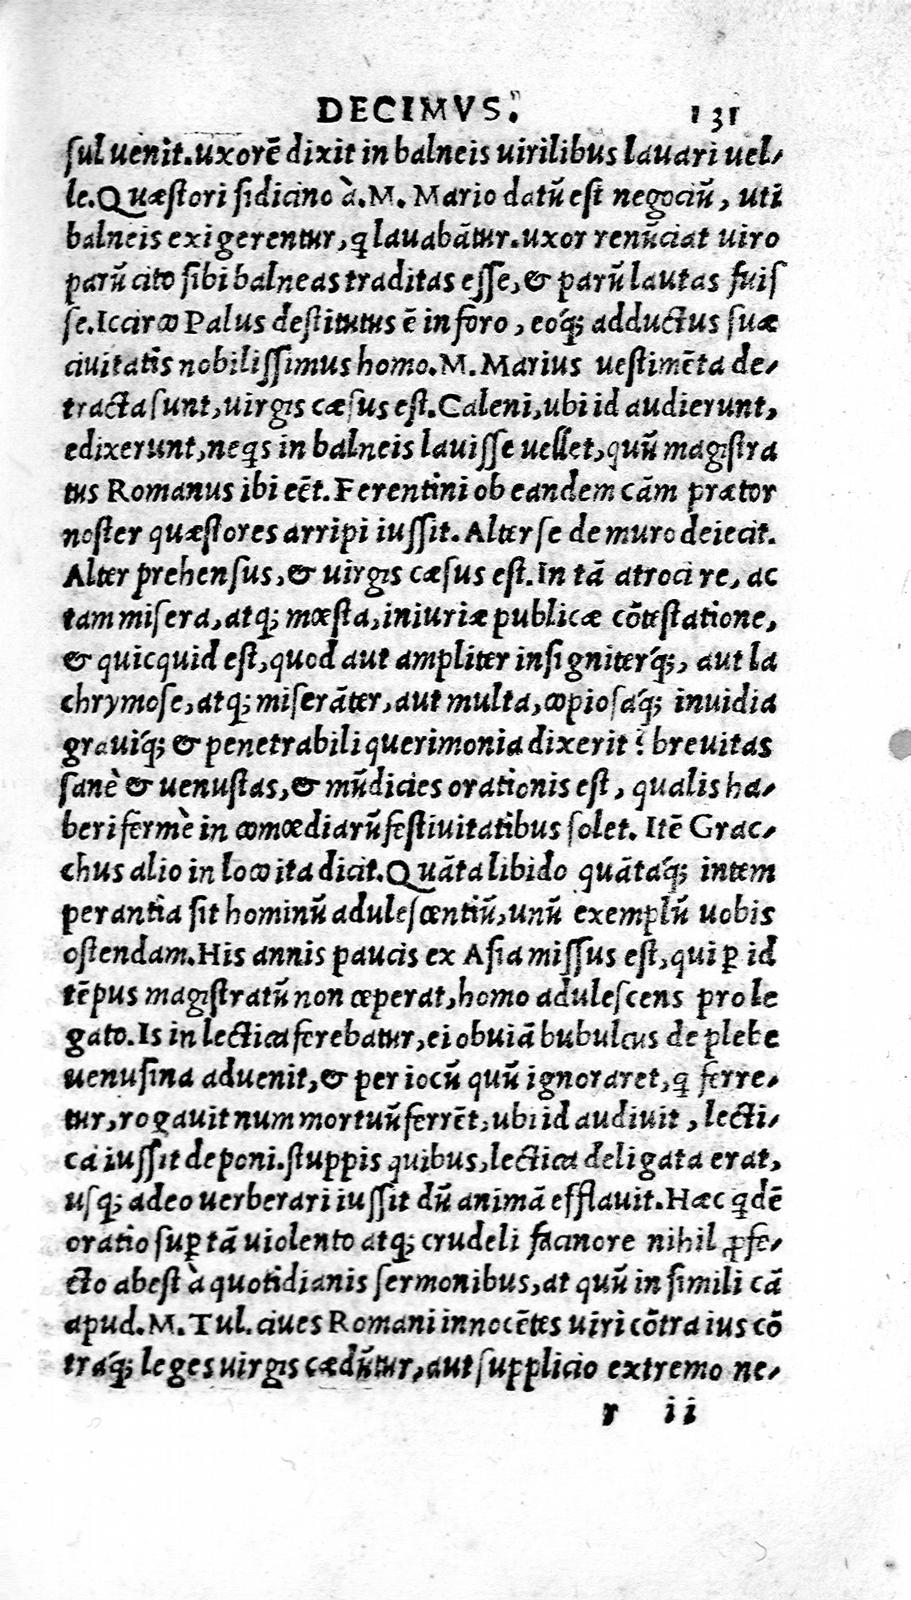 DECIMVS. 131
ſul uenit.uxorē dixit in balneis uirilibus lauari uel-
le.Quæſtori ſidicino à.M. Mario datū eſt negociū, uti
balneis exigerentur,q̃ lauabātur.uxor renūciat uiro
parū cito ſibi balneas traditas eſſe,& parū lautas fuiſ
ſe.Iccirco Palus deſtitutus ē in foro, eoq́; adductus ſuæ
ciuitatis nobiliſſimus homo.M. Marius ueſtimēta de-
tracta ſunt,uirgis cæſus eſt.Caleni,ubi id audierunt,
edixerunt,neq̃s in balneis lauiſſe uellet,quū magiſtra
tus Romanus ibi eēt.Ferentini ob eandem cām prætor
noſter quæſtores arripi iuſſit.Alter ſe de muro deiecit.
Alter prehenſus,& uirgis cæſus eſt.In tā atroci re, ac
tam miſera,atq; mœſta,iniuriæ publicæ cōteſtatione,
& quicquid eſt,quod aut ampliter inſigniterq́;, aut la
chrymoſe,atq; miſerāter,aut multa,copioſaq́; inuidia
grauiq́; & penetrabili querimonia dixerit? breuitas
ſanè & uenuſtas,& mūdicies orationis eſt, qualis ha-
beri fermè in comœdiarū feſtiuitatibus ſolet. Itē Grac-
chus alio in loco ita dicit.Quāta libido quātaq́; intem
perantia ſit hominū aduleſcentiū,unū exemplū uobis
oſtendam.His annis paucis ex Aſia miſſus eſt,qui ꝑ id
tēpus magiſtratū non ceperat,homo aduleſcens pro le
gato.Is in lectica ferebatur,ei obuiā bubulcus de plebe
uenuſina aduenit,& per iocū quū ignoraret,q̃ ferre-
tur,rogauit num mortuū ferrēt,ubi id audiuit, lecti-
cā iuſſit deponi.ſtuppis quibus,lectica deligata erat,
uſq; adeo uerberari iuſſit dū animā efflauit.Hæc q̃dē
oratio ſuꝑ tā uiolento atq; crudeli facinore nihil ꝓfe-
cto abeſt à quotidianis ſermonibus,at quū in ſimili cā
apud.M.Tul.ciues Romani innocētes uiri cōtra ius cō
traq́; leges uirgis cædūtur,aut ſupplicio extremo ne-
r ii